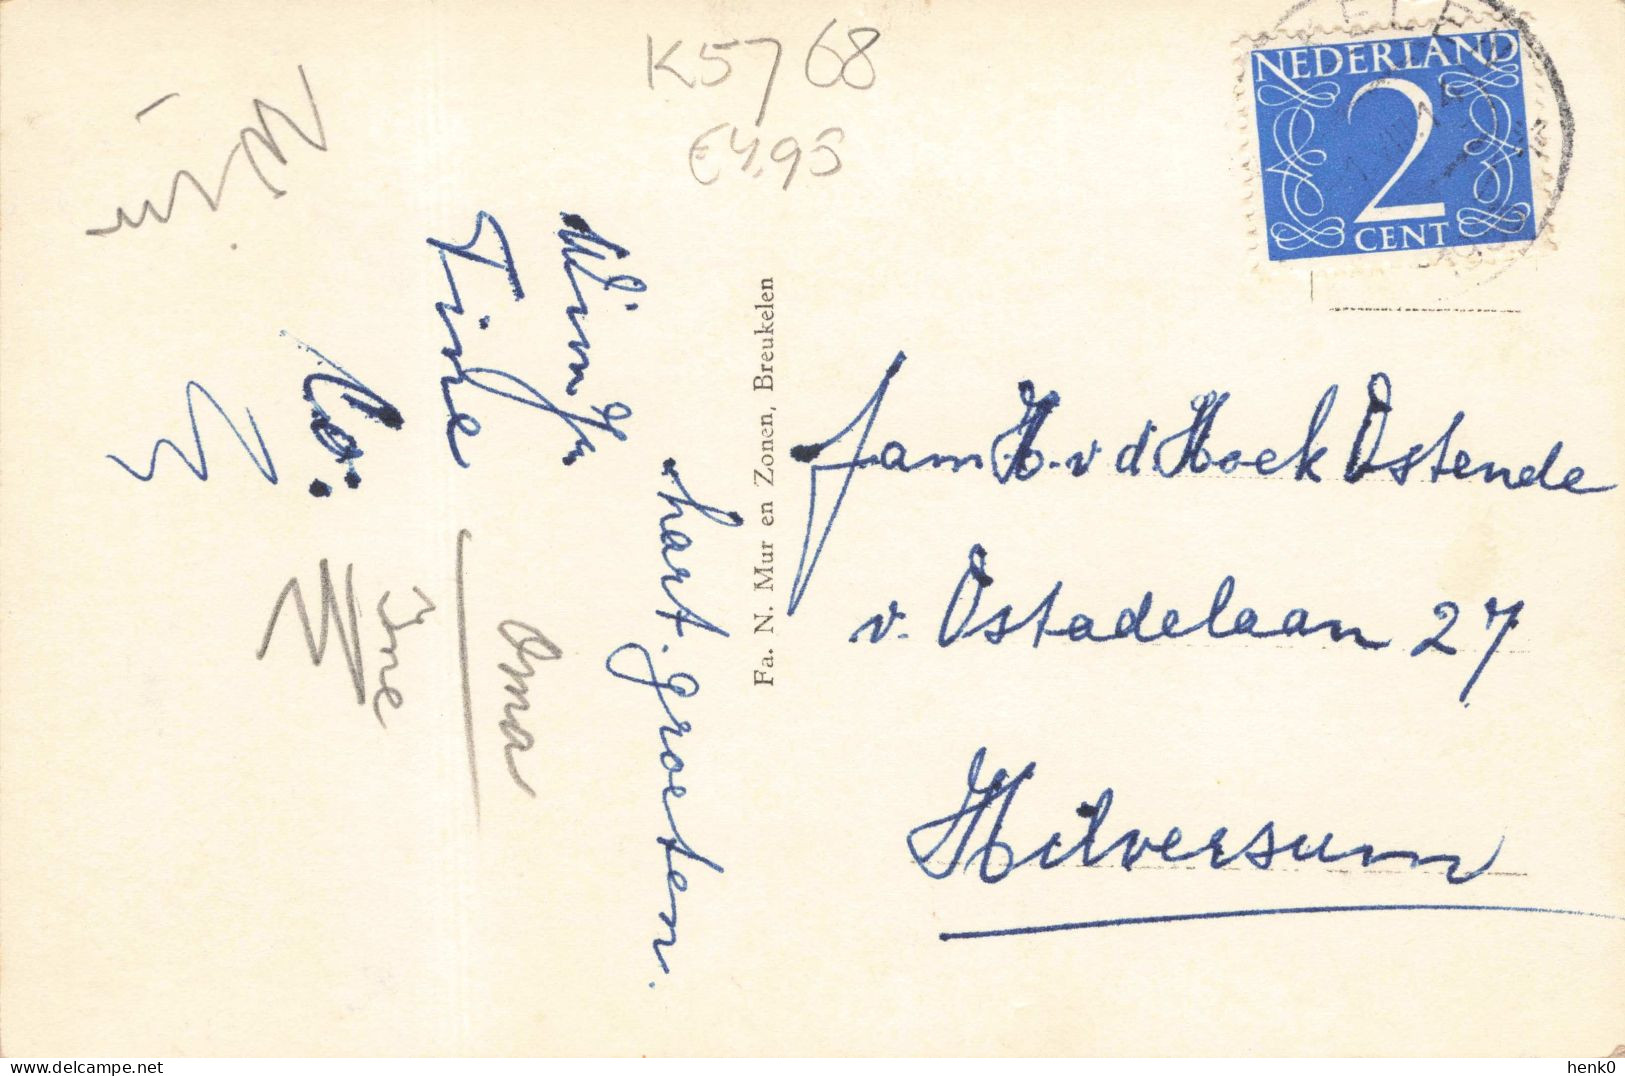 K5768
€4.95
NEDERLAND
2
CENT
hart. groeten.
Wimfy
Tine
Oma
Ine
Wim
Fa. N. Mur en Zonen, Breukelen
fam H. v. d Hoek Ostende
v. Ostadelaan 27
Hilversum
henk0